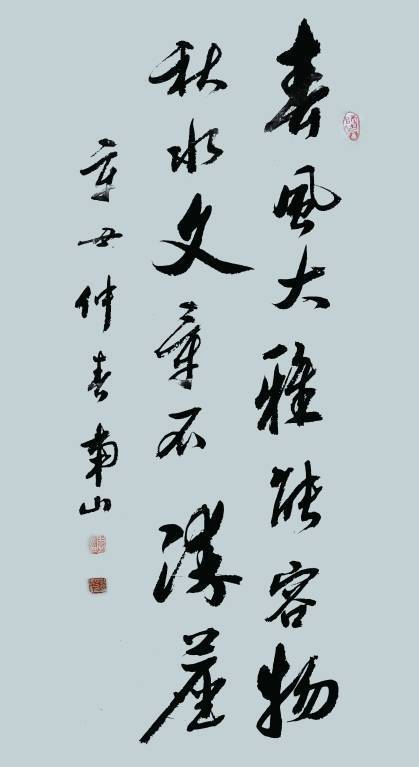 春風大雅能容物
秋水文章不染塵
辛丑仲春南山